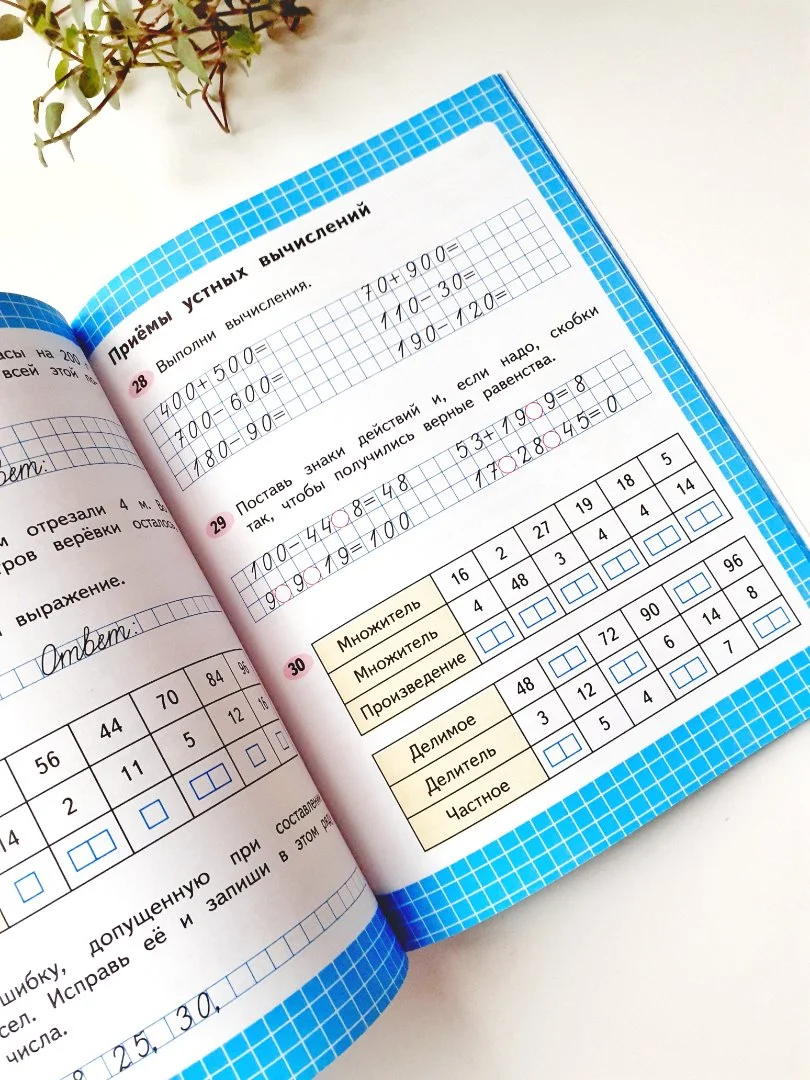 асы на 200
всей этой по-
вет:
отрезали 4 м.
тров верёвки
выражение.
Ответ:
56 44 70 84 96
14 2 11 5 12 16
шибку, допущенную при
сел. Исправь её и запиши в этом
числа.
25, 30,
Приёмы устных вычислений
28 Выполни вычисления.
400+500= 70+900=
700-600= 110-30=
180-90= 190-120=
29 Поставь знаки действий и, если надо, скобки
так, чтобы получились верные равенства.
100-44 8=48 53+19 9=8
9 9 19=100 17 28 45=0
30
Множитель 16 2 27 19 18 5
Множитель 4 48 3 4 4 14
Произведение
Делимое 48 72 90 96
Делитель 3 12 6 14 8
Частное 5 4 7